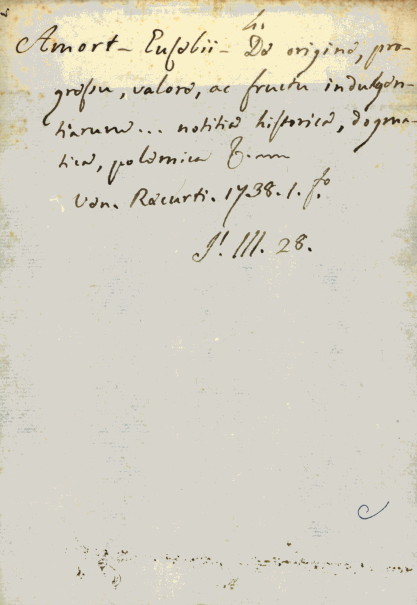 h.
Amort - Eusebii - De origine, pro-
gressu, valore, ac fructu indulgen-
tiarum ... notitia historica, dogma-
tica, polemica
Ven. Recurti. 1738. 1. fo.
III. 28.